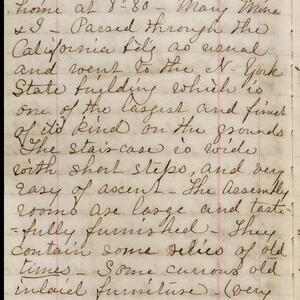 home at 8-30 - Mary Mina
& I - Passed through the
California Bdg as usual
and went to the N-York
State building which is
one of the largest and finest
of its kind on the grounds
The staircase is wide
with short steps and very
easy of ascent - The Assembly
rooms are large and taste-
=fully furnished - They
contain some relics of old
times - Some curious old
inlaid furniture - (very